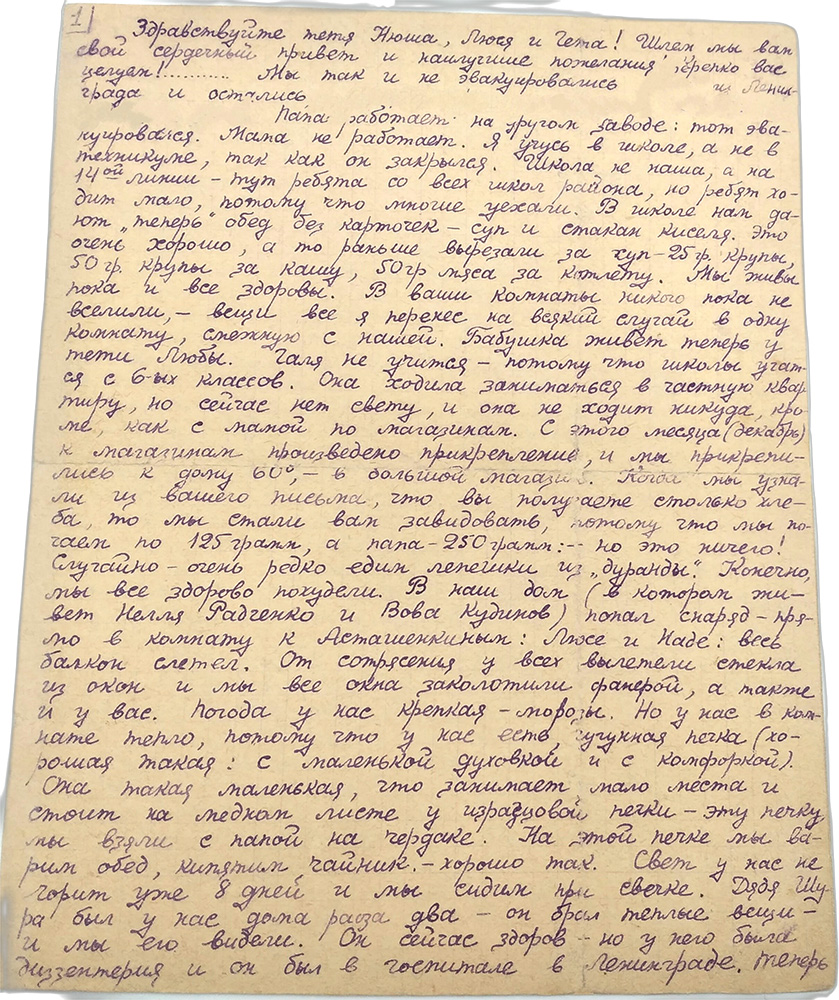 1
Здравствуйте тетя Нюша, Люся и Гета! Шлем мы вам
свой сердечный привет и наилучшие пожелания крепко вас
целуем!........... Мы так и не эвакуировались из Ленин-
града и остались
Папа работает на другом заводе: тот эва-
куировался. Мама не работает. Я учусь в школе, а не в
техникуме, так как он закрылся. Школа не наша, а на
14ой линии – тут ребята со всех школ района, но ребят хо-
дит мало, потому что многие уехали. В школе нам да-
ют „теперь" обед без карточек – суп и стакан киселя. Это
очень хорошо, а то раньше вырезали за суп – 25 гр. крупы,
50 гр. крупы за кашу, 50 гр мяса за котлету. Мы живы
пока и все здоровы. В ваши комнаты никого пока не
вселили, – вещи все я перенес на всякий случай в одну
комнату, смежную с нашей. Бабушка живет теперь у
тети Любы. Галя не учится – потому что школы учат-
ся с 6-ых классов. Она ходила заниматься в частную квар
тиру, но сейчас нет свету, и она не ходит никуда, кро-
ме, как с мамой по магазинам. С этого месяца (декабрь)
к магазинам произведено прикрепление, и мы прикрепи-
лись к дому 60, – в большой магазин. Когда мы узна-
ли из вашего письма, что вы получаете столько хле-
ба, то мы стали вам завидовать, потому что мы по-
чаем по 125 грамм, а папа – 250 грамм: – но это ничего!
Случайно – очень редко едим лепешки из „дуранды". Конечно,
мы все здорово похудели. В наш дом (в котором жи-
вет Нелля Радченко и Вова Кудинов) попал снаряд – пря-
мо в комнату к Асташенкиным: Люсе и Наде: весь
балкон слетел. От сотрясения у всех вылетели стекла
из окон и мы все окна заколотили фанерой, а также
и у вас. Погода у нас крепкая – морозы. Но у нас в ком-
нате тепло, потому что у нас есть чугунная печка (хо-
рошая такая: с маленькой духовкой и с комфоркой).
Она такая маленькая, что занимает мало места и
стоит на медном листе у изразцовой печки – эту печку
мы взяли с папой на чердаке. На этой печке мы ва-
рим обед, кипятим чайник. – хорошо так. Свет у нас не
горит уже 8 дней и мы сидим при свечке. Дядя Шу-
ра был у нас дома раза два – он брал теплые вещи –
и мы его видели. Он сейчас здоров – но у него была
диззентерия и он был в госпитале в Ленинграде. теперь